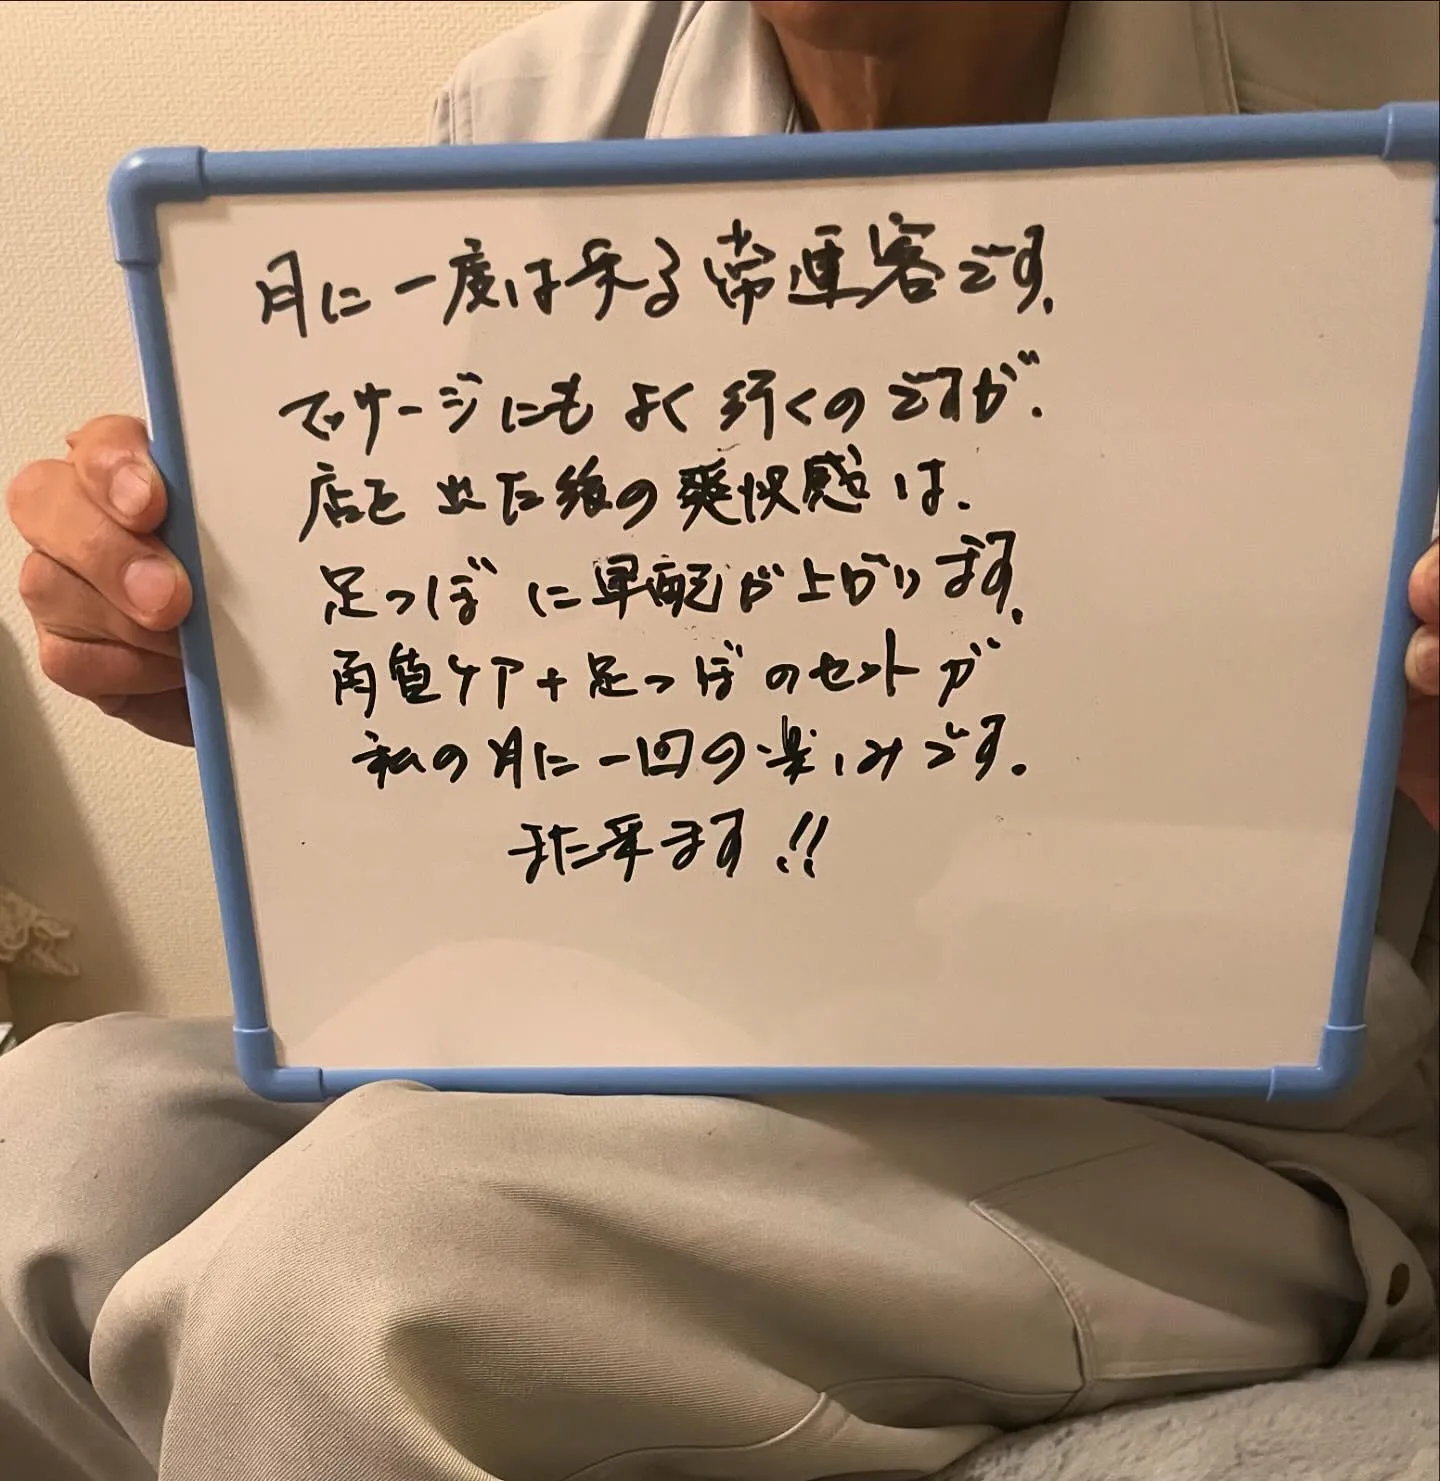 月に一度は来る常連客です。
マッサージにもよく行くのですが、
店を出た後の爽快感は、
足つぼに軍配が上がります。
角質ケア+足つぼのセットが
私の月に一回の楽しみです。
また来ます!!